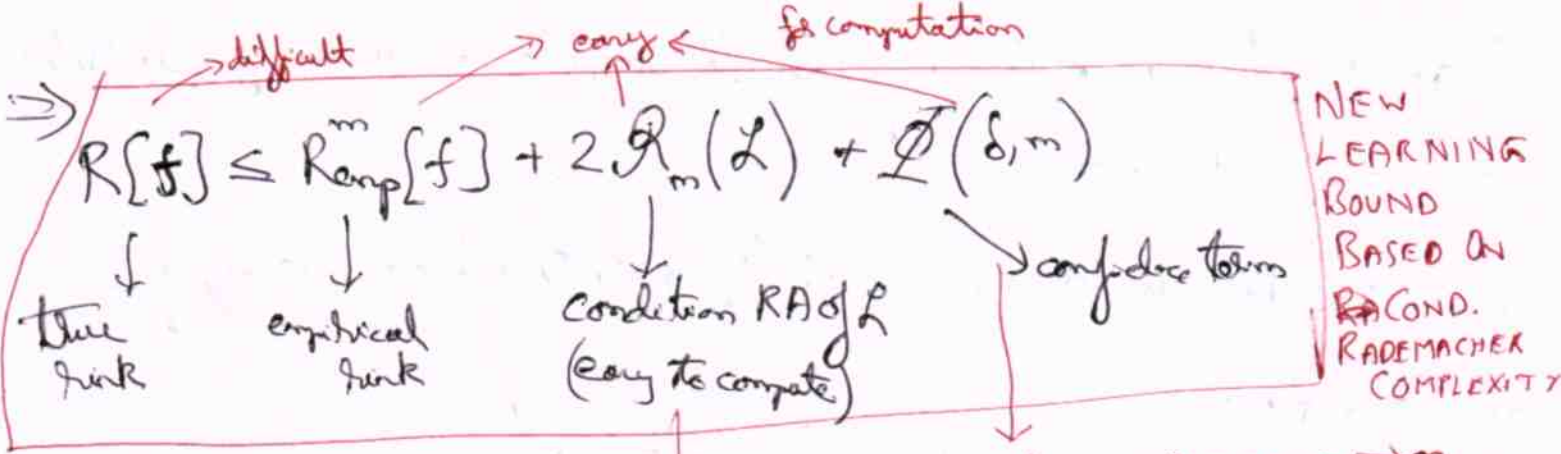 difficult easy for computation
⇒ R[f] ≤ R^m_emp[f] + 2 ℛ_m(ℒ) + Φ(δ, m)
true risk
empirical risk
condition RA of ℒ
(easy to compute)
confidence term
NEW
LEARNING
BOUND
BASED ON
COND.
RADEMACHER
COMPLEXITY